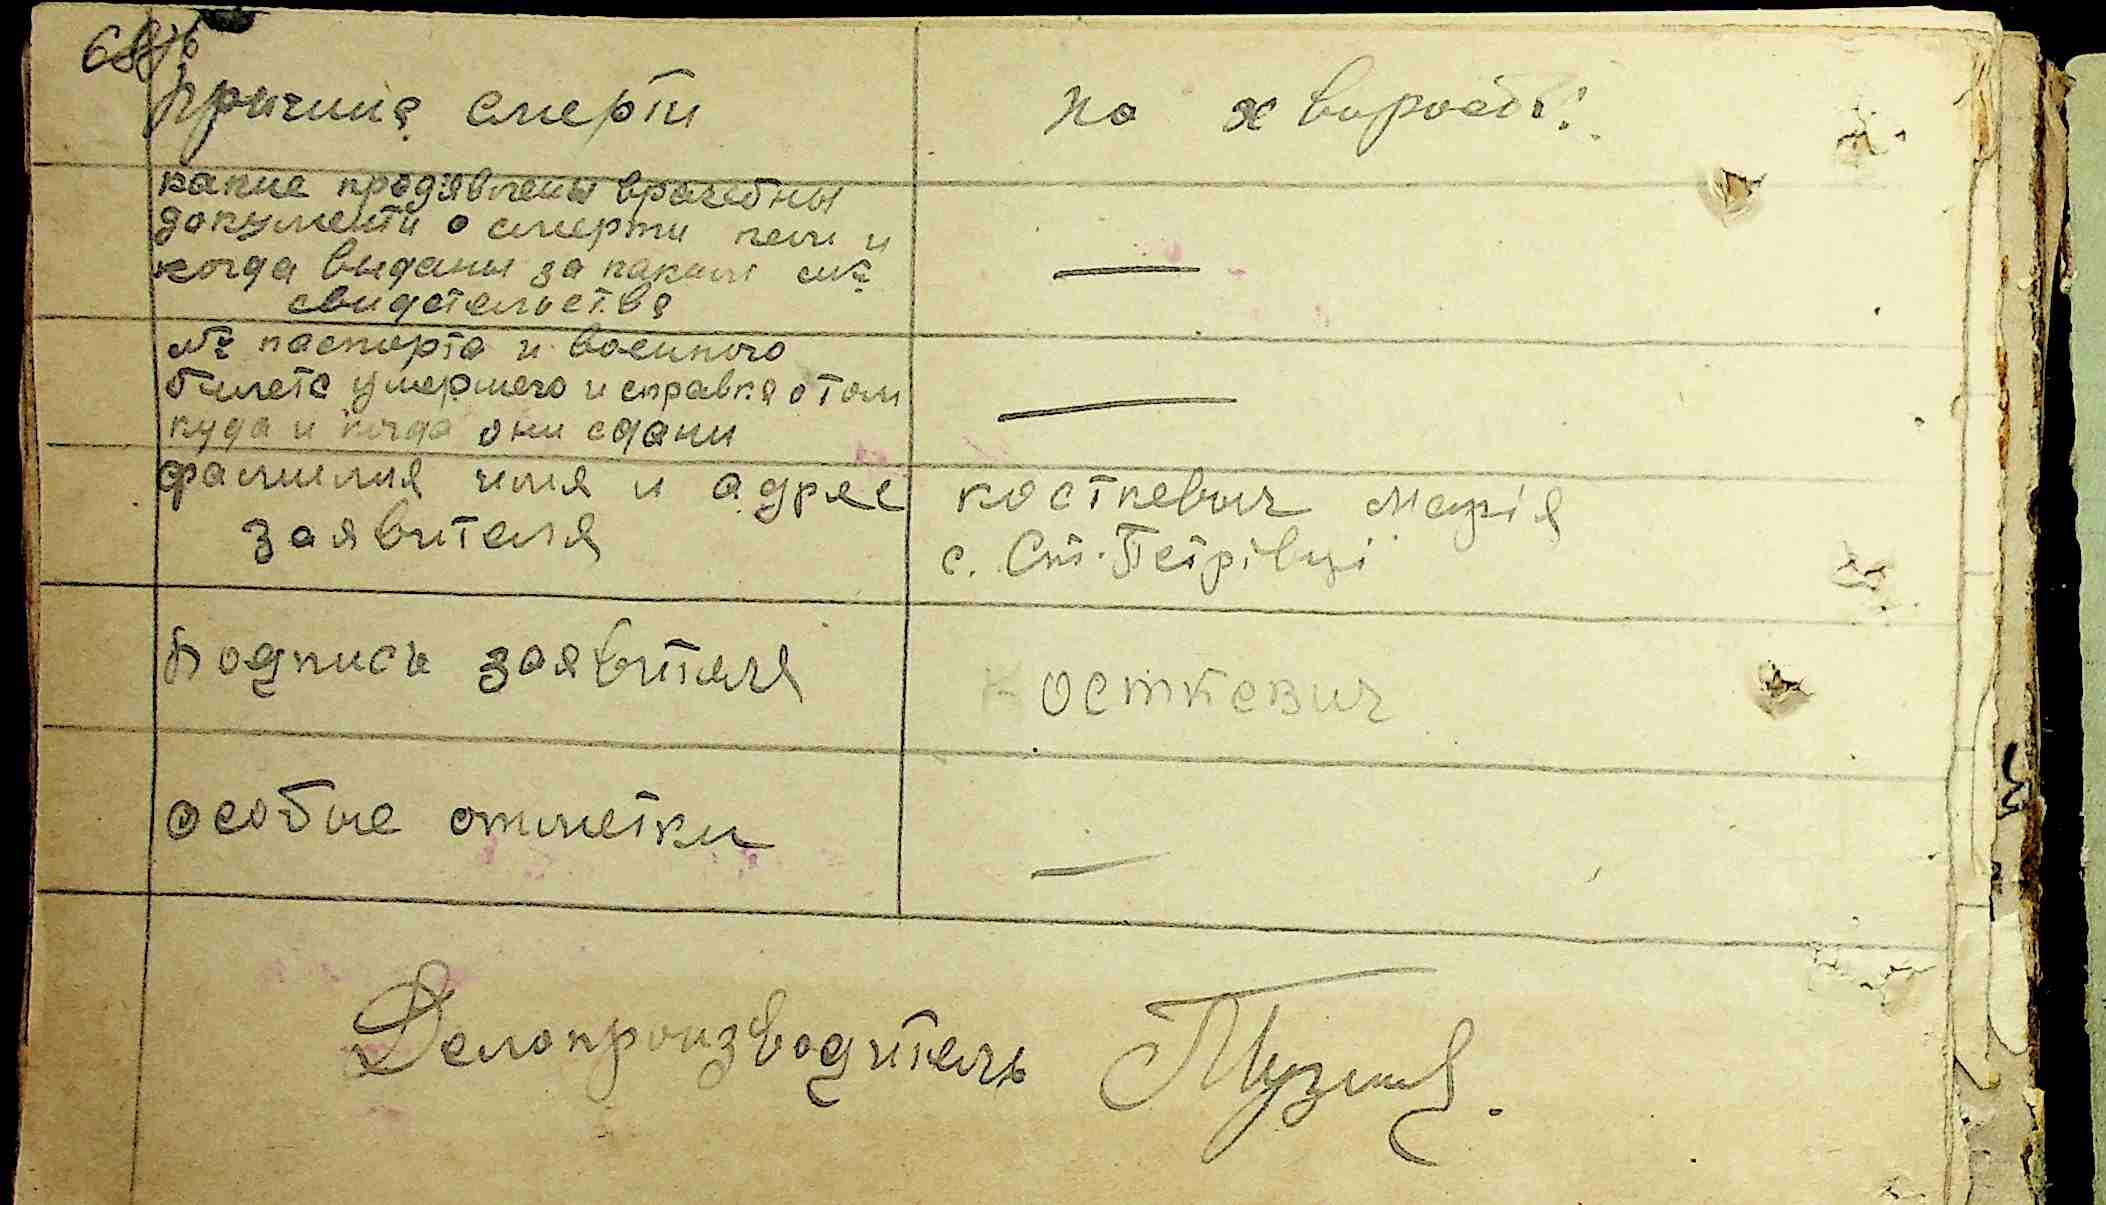 причина смерти по хворобi
какие предявлены врачебны
документи о смерти кем и
когда выданы за каким №
свидетельства —
№ паспорта и военного
билета умершего и справка о том
куда и когда они сдани —
фамилия имя и адрес косткевич марія
заявителя с. Ст. Петрівці
Подпись заявителя косткевич
особые отметки —
Делопроизводитель